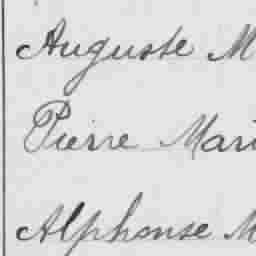 Auguste M
Pierre Mari
Alphonse M